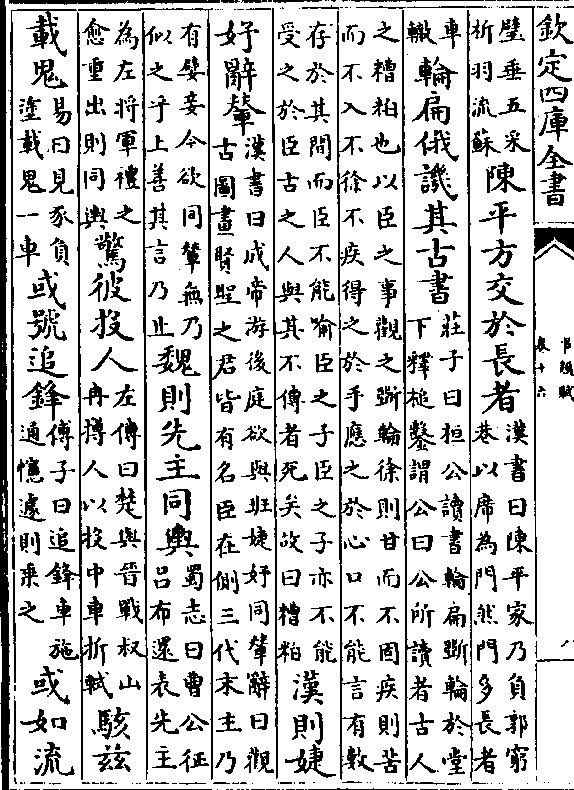 欽定四庫全書
事類賦
卷十六
八
璧垂五采
析羽流蘇
陳平方交於長者
漢書曰陳平家乃負郭窮
巷以席為門然門多長者
車
轍
輪扁俄譏其古書
莊子曰桓公讀書輪扁斵輪於堂
下釋槌鑿謂公曰公所讀者古人
之糟粕也以臣之事觀之斵輪徐則甘而不固疾則苦
而不入不徐不疾得之於手應之於心口不能言有數
存於其間而臣不能喻臣之子臣之子亦不能
受之於臣古之人與其不傳者死矣故曰糟粕
漢則婕
妤辭輦
漢書曰成帝游後庭欲與班婕妤同輦辭曰觀
古圖畫賢聖之君皆有名臣在側三代末主乃
有嬖妾今欲同輦無乃
似之乎上善其言乃止
魏則先主同輿
蜀志曰曹公征
呂布還表先主
為左將軍禮之
愈重出則同輿
驚彼投人
左傳曰楚與晉戰叔山
冉搏人以投中車折軾
駭兹
載鬼
易曰見豕負
塗載鬼一車
或號追鋒
傅子曰追鋒車施
通幰遽則乘之
或如流